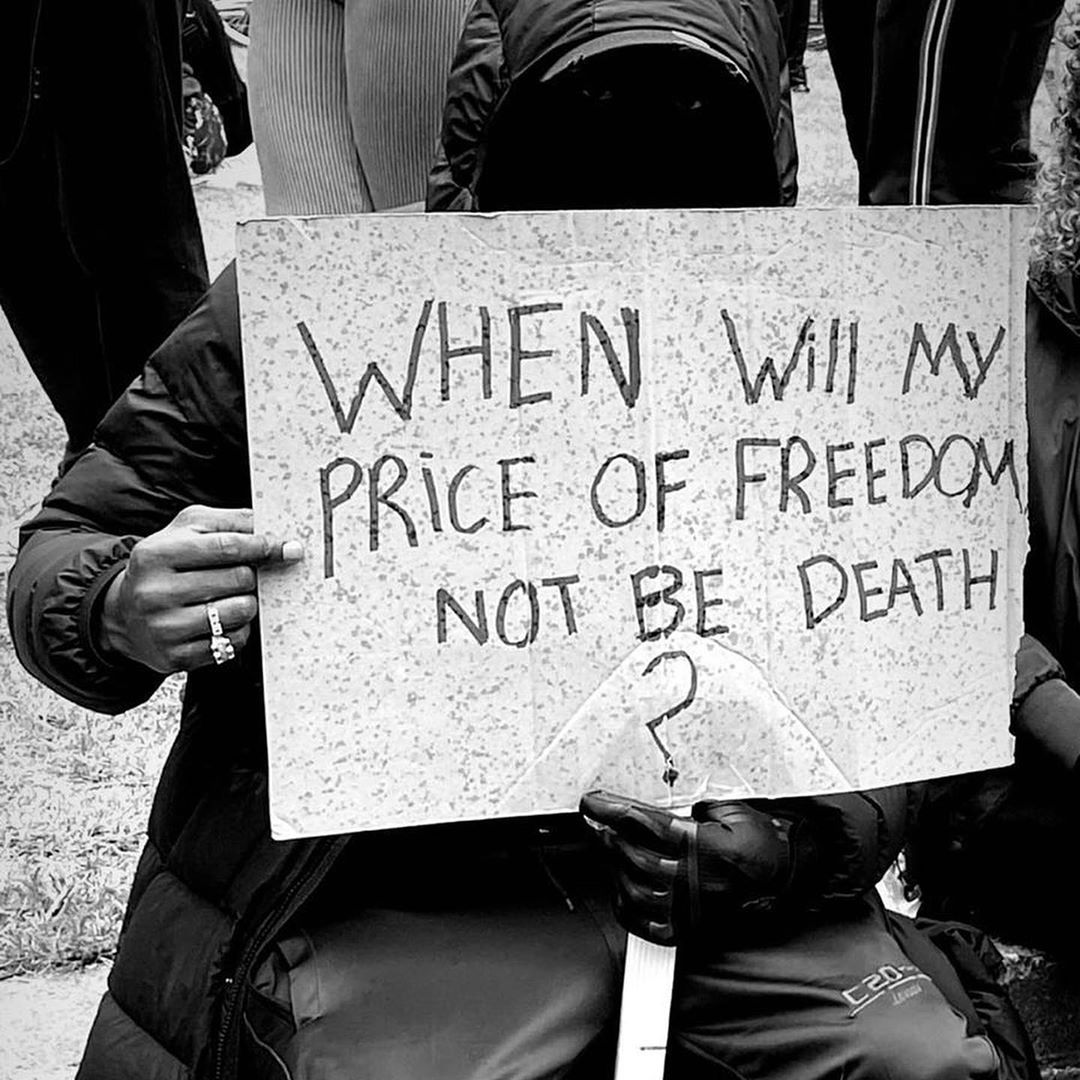 WHEN Will MY
PRiCE OF FREEDOM
NOT BE DEATH
?
C20
LONDON